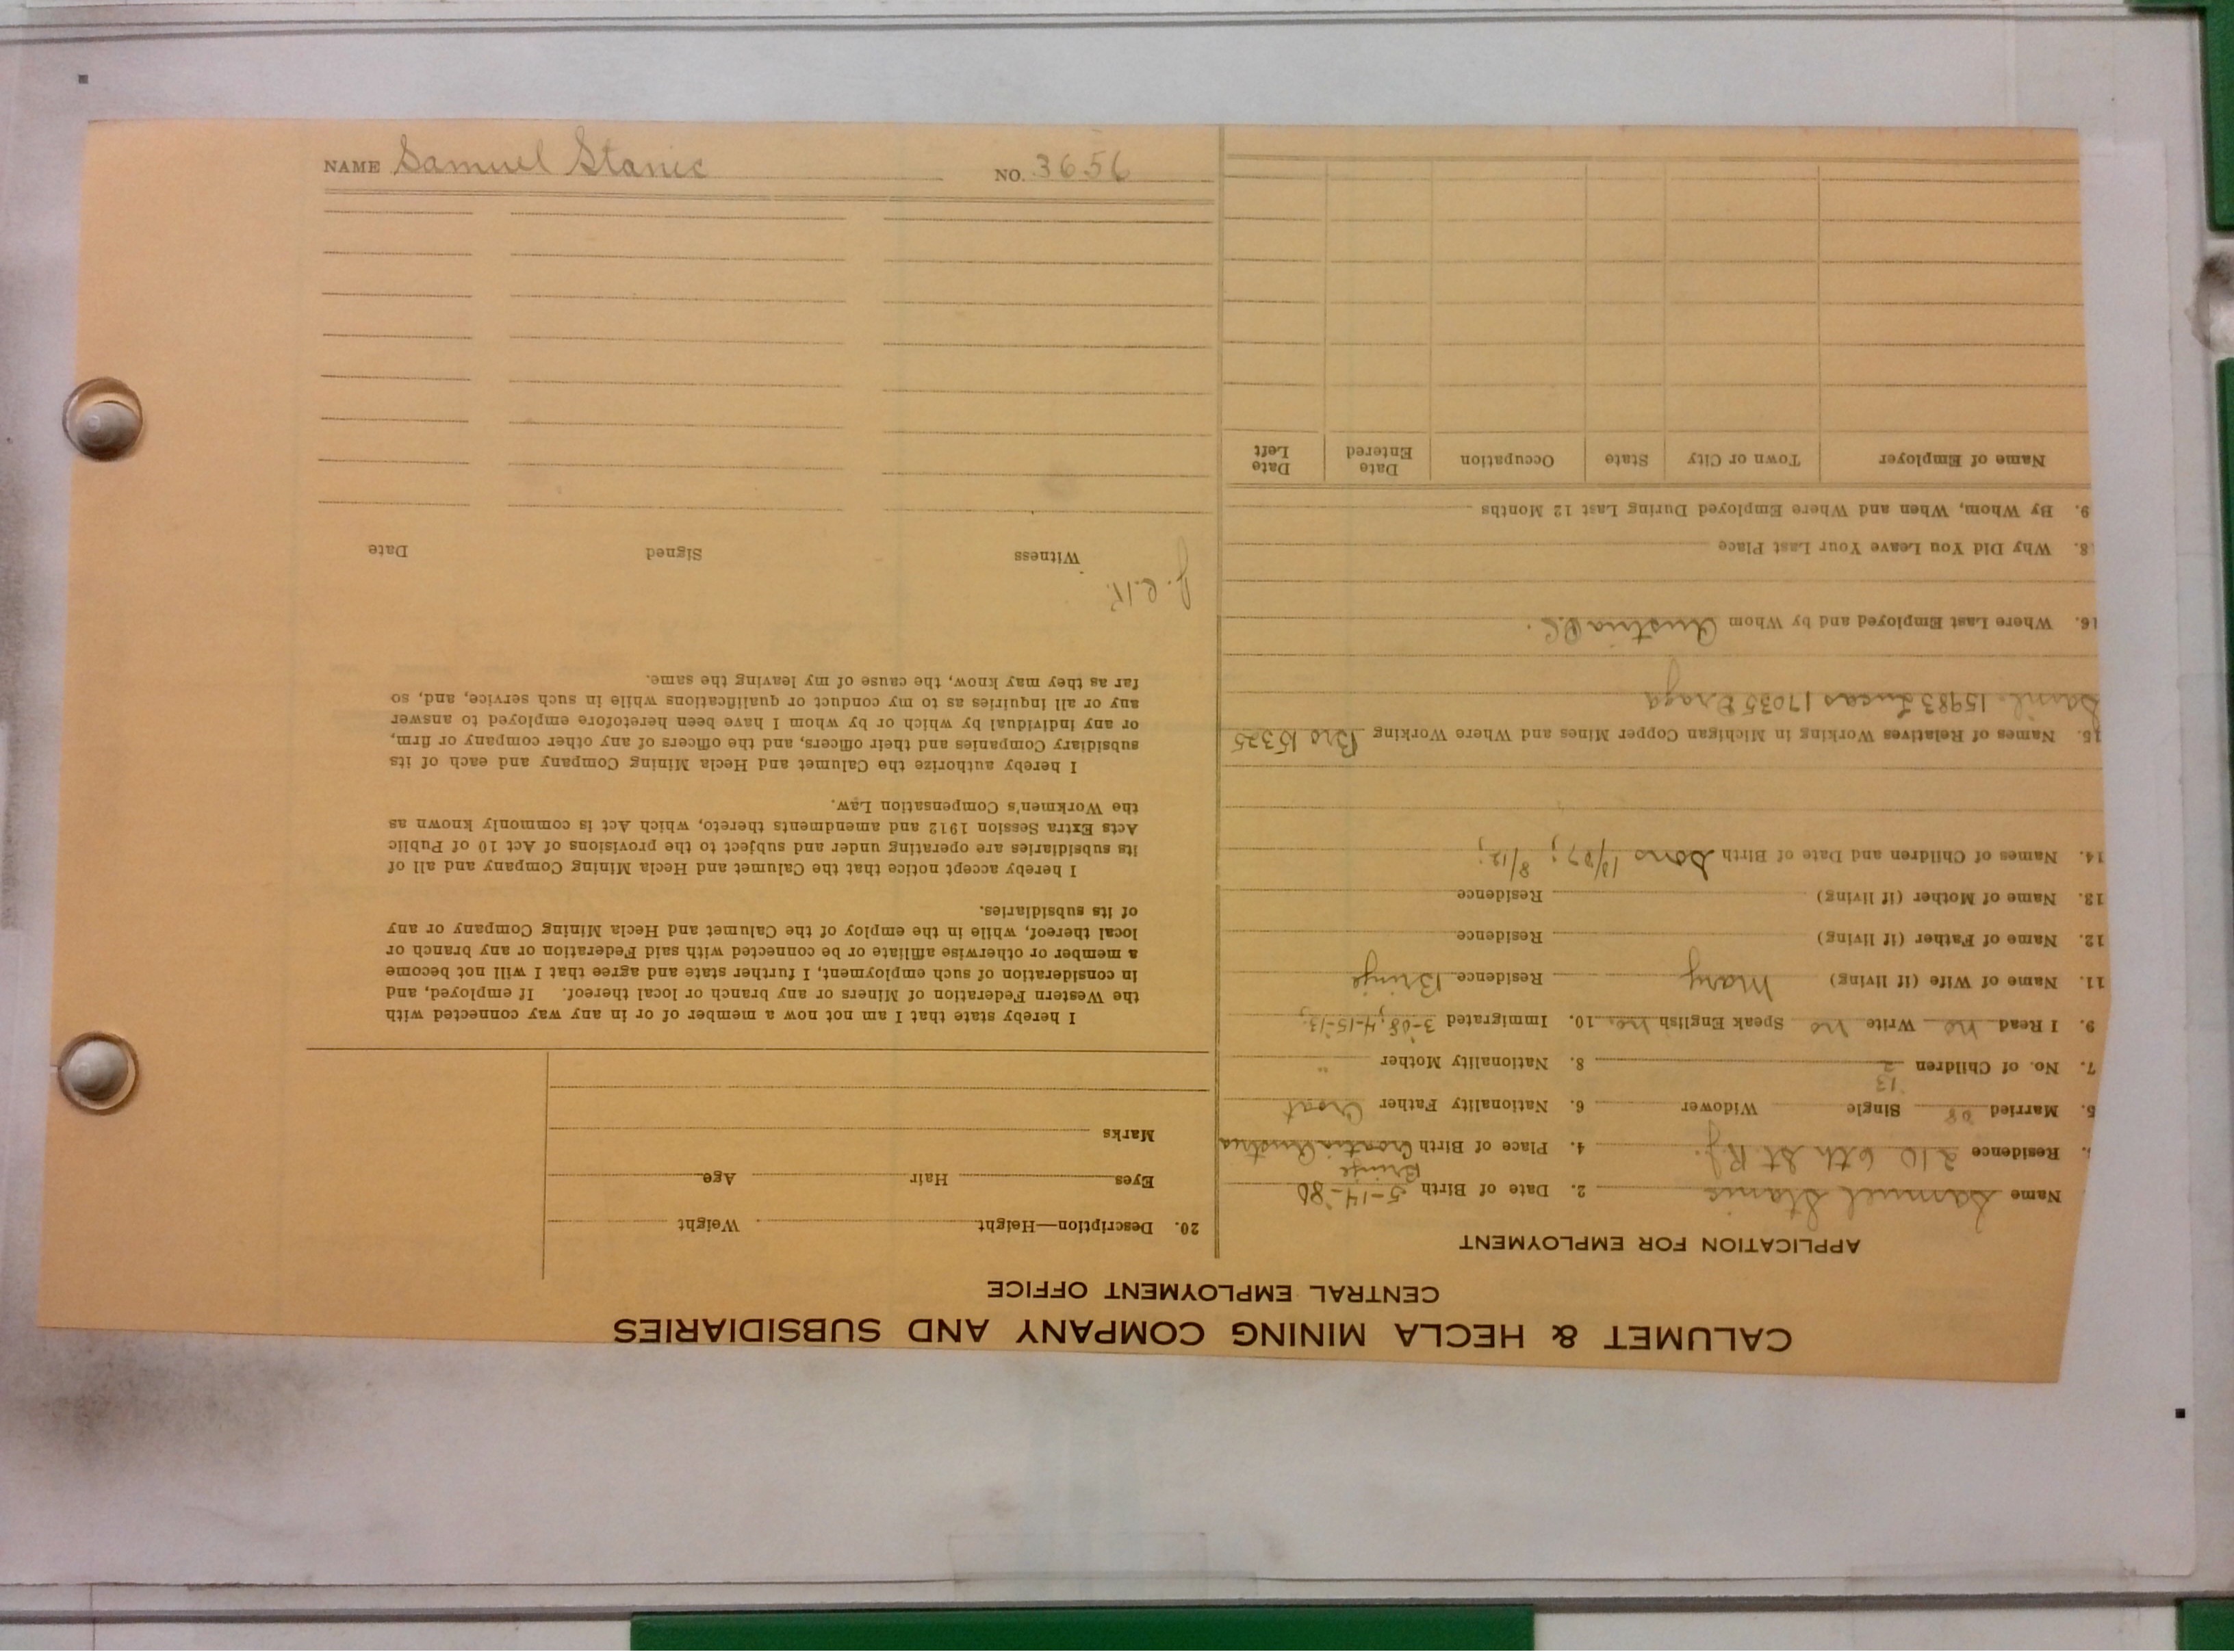 NAME Samuel Stanic NO. 3656
CALUMET & HECLA MINING COMPANY AND SUBSIDIARIES
CENTRAL EMPLOYMENT OFFICE
APPLICATION FOR EMPLOYMENT
Name Samuel Stanic 2. Date of Birth 5-14-80
Brinje
Residence 210 6th St R.J. 4. Place of Birth Croatia Austria
5. Married 08 Single Widower 6. Nationality Father Croat
13
7. No. of Children 2 8. Nationality Mother "
9. I Read no Write no Speak English no 10. Immigrated 3-08; 4-15-13;
11. Name of Wife (if living) Mary Residence Brinje
12. Name of Father (if living) Residence
13. Name of Mother (if living) Residence
14. Names of Children and Date of Birth Sons 12/07; 8/12;
15. Names of Relatives Working in Michigan Copper Mines and Where Working Bro 15325
Danil 15983 Lucas 17035 Draga
16. Where Last Employed and by Whom Austria
18. Why Did You Leave Your Last Place
9. By Whom, When and Where Employed During Last 12 Months
Name of Employer Town or City State Occupation Date Entered Date Left
20. Description—Height Weight
Eyes Hair Age
Marks
I hereby state that I am not now a member of or in any way connected with
the Western Federation of Miners or any branch or local thereof. If employed, and
in consideration of such employment, I further state and agree that I will not become
a member or otherwise affiliate or be connected with said Federation or any branch or
local thereof, while in the employ of the Calumet and Hecla Mining Company or any
of its subsidiaries.
I hereby accept notice that the Calumet and Hecla Mining Company and all of
its subsidiaries are operating under and subject to the provisions of Act 10 of Public
Acts Extra Session 1912 and amendments thereto, which Act is commonly known as
the Workmen's Compensation Law.
I hereby authorize the Calumet and Hecla Mining Company and each of its
subsidiary Companies and their officers, and the officers of any other company or firm,
or any individual by which or by whom I have been heretofore employed to answer
any or all inquiries as to my conduct or qualifications while in such service, and, so
far as they may know, the cause of my leaving the same.
J.C.K.
Witness Signed Date